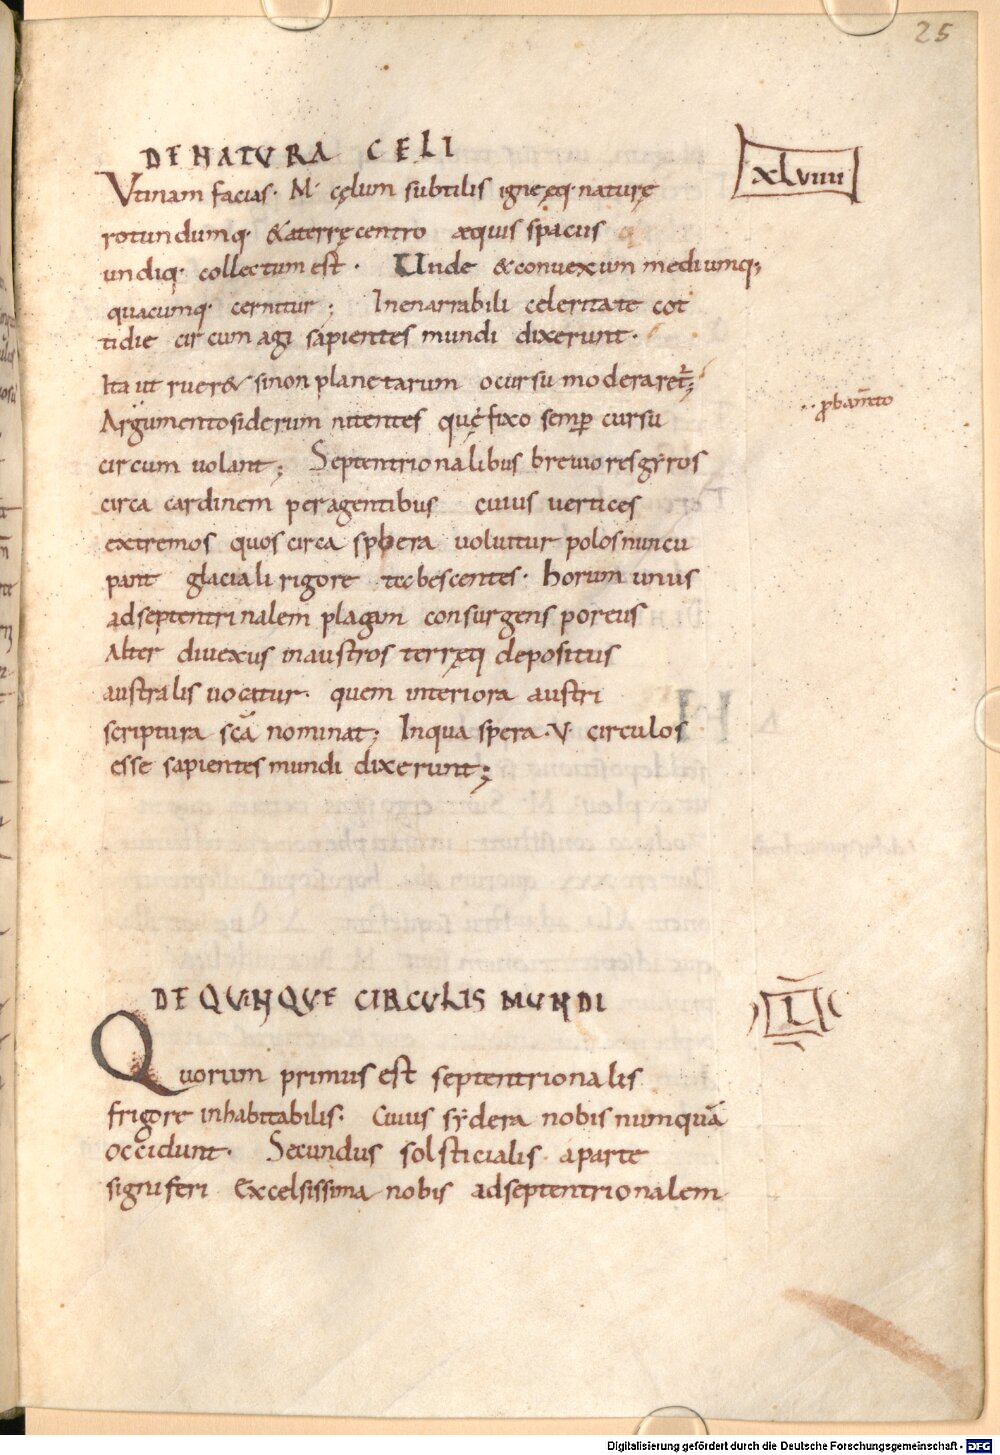 25
DE NATURA CELI
XLVIIII
Utinam facias· M· cęlum subtilis igneęq· naturę
rotundumq· & a terrę centro æquis spaciis
undiq· collectum est· Unde & convexum mediumq;
quacumq· cernitur; Inenarrabili celeritate cot
tidie circum agi sapientes mundi dixerunt·
Ita ut ruer& si non planetarum ocursu moderaret͛;
Argumento siderum nitentes quę fixo semp̲ cursu
ꝓbam̅to
circum volant; Septentrionalibus breviores gẏros
circa cardinem peragentibus cuius vertices
extremos quos circa sphera voluitur polos nuncu
pant glaciali rigore tecbescentes· horum unus
ad septentrinalem plagam consurgens poreus
Alter divexus in austros terręq depositus
australis vocatur· quem interiora austri
scriptura sc̅a nominat; In qua spera· V· circulos
esse sapientes mundi dixerunt;
DE QUINQUE CIRCULIS MUNDI
L
Quorum primus est septentrionalis
frigore inhabitabilis· Cuius sẏdera nobis numqua̅
occidunt· Secundus solsticialis a parte
signiferi Excelsissima nobis ad septentrionalem
Digitalisierung gefördert durch die Deutsche Forschungsgemeinschaft - DFG